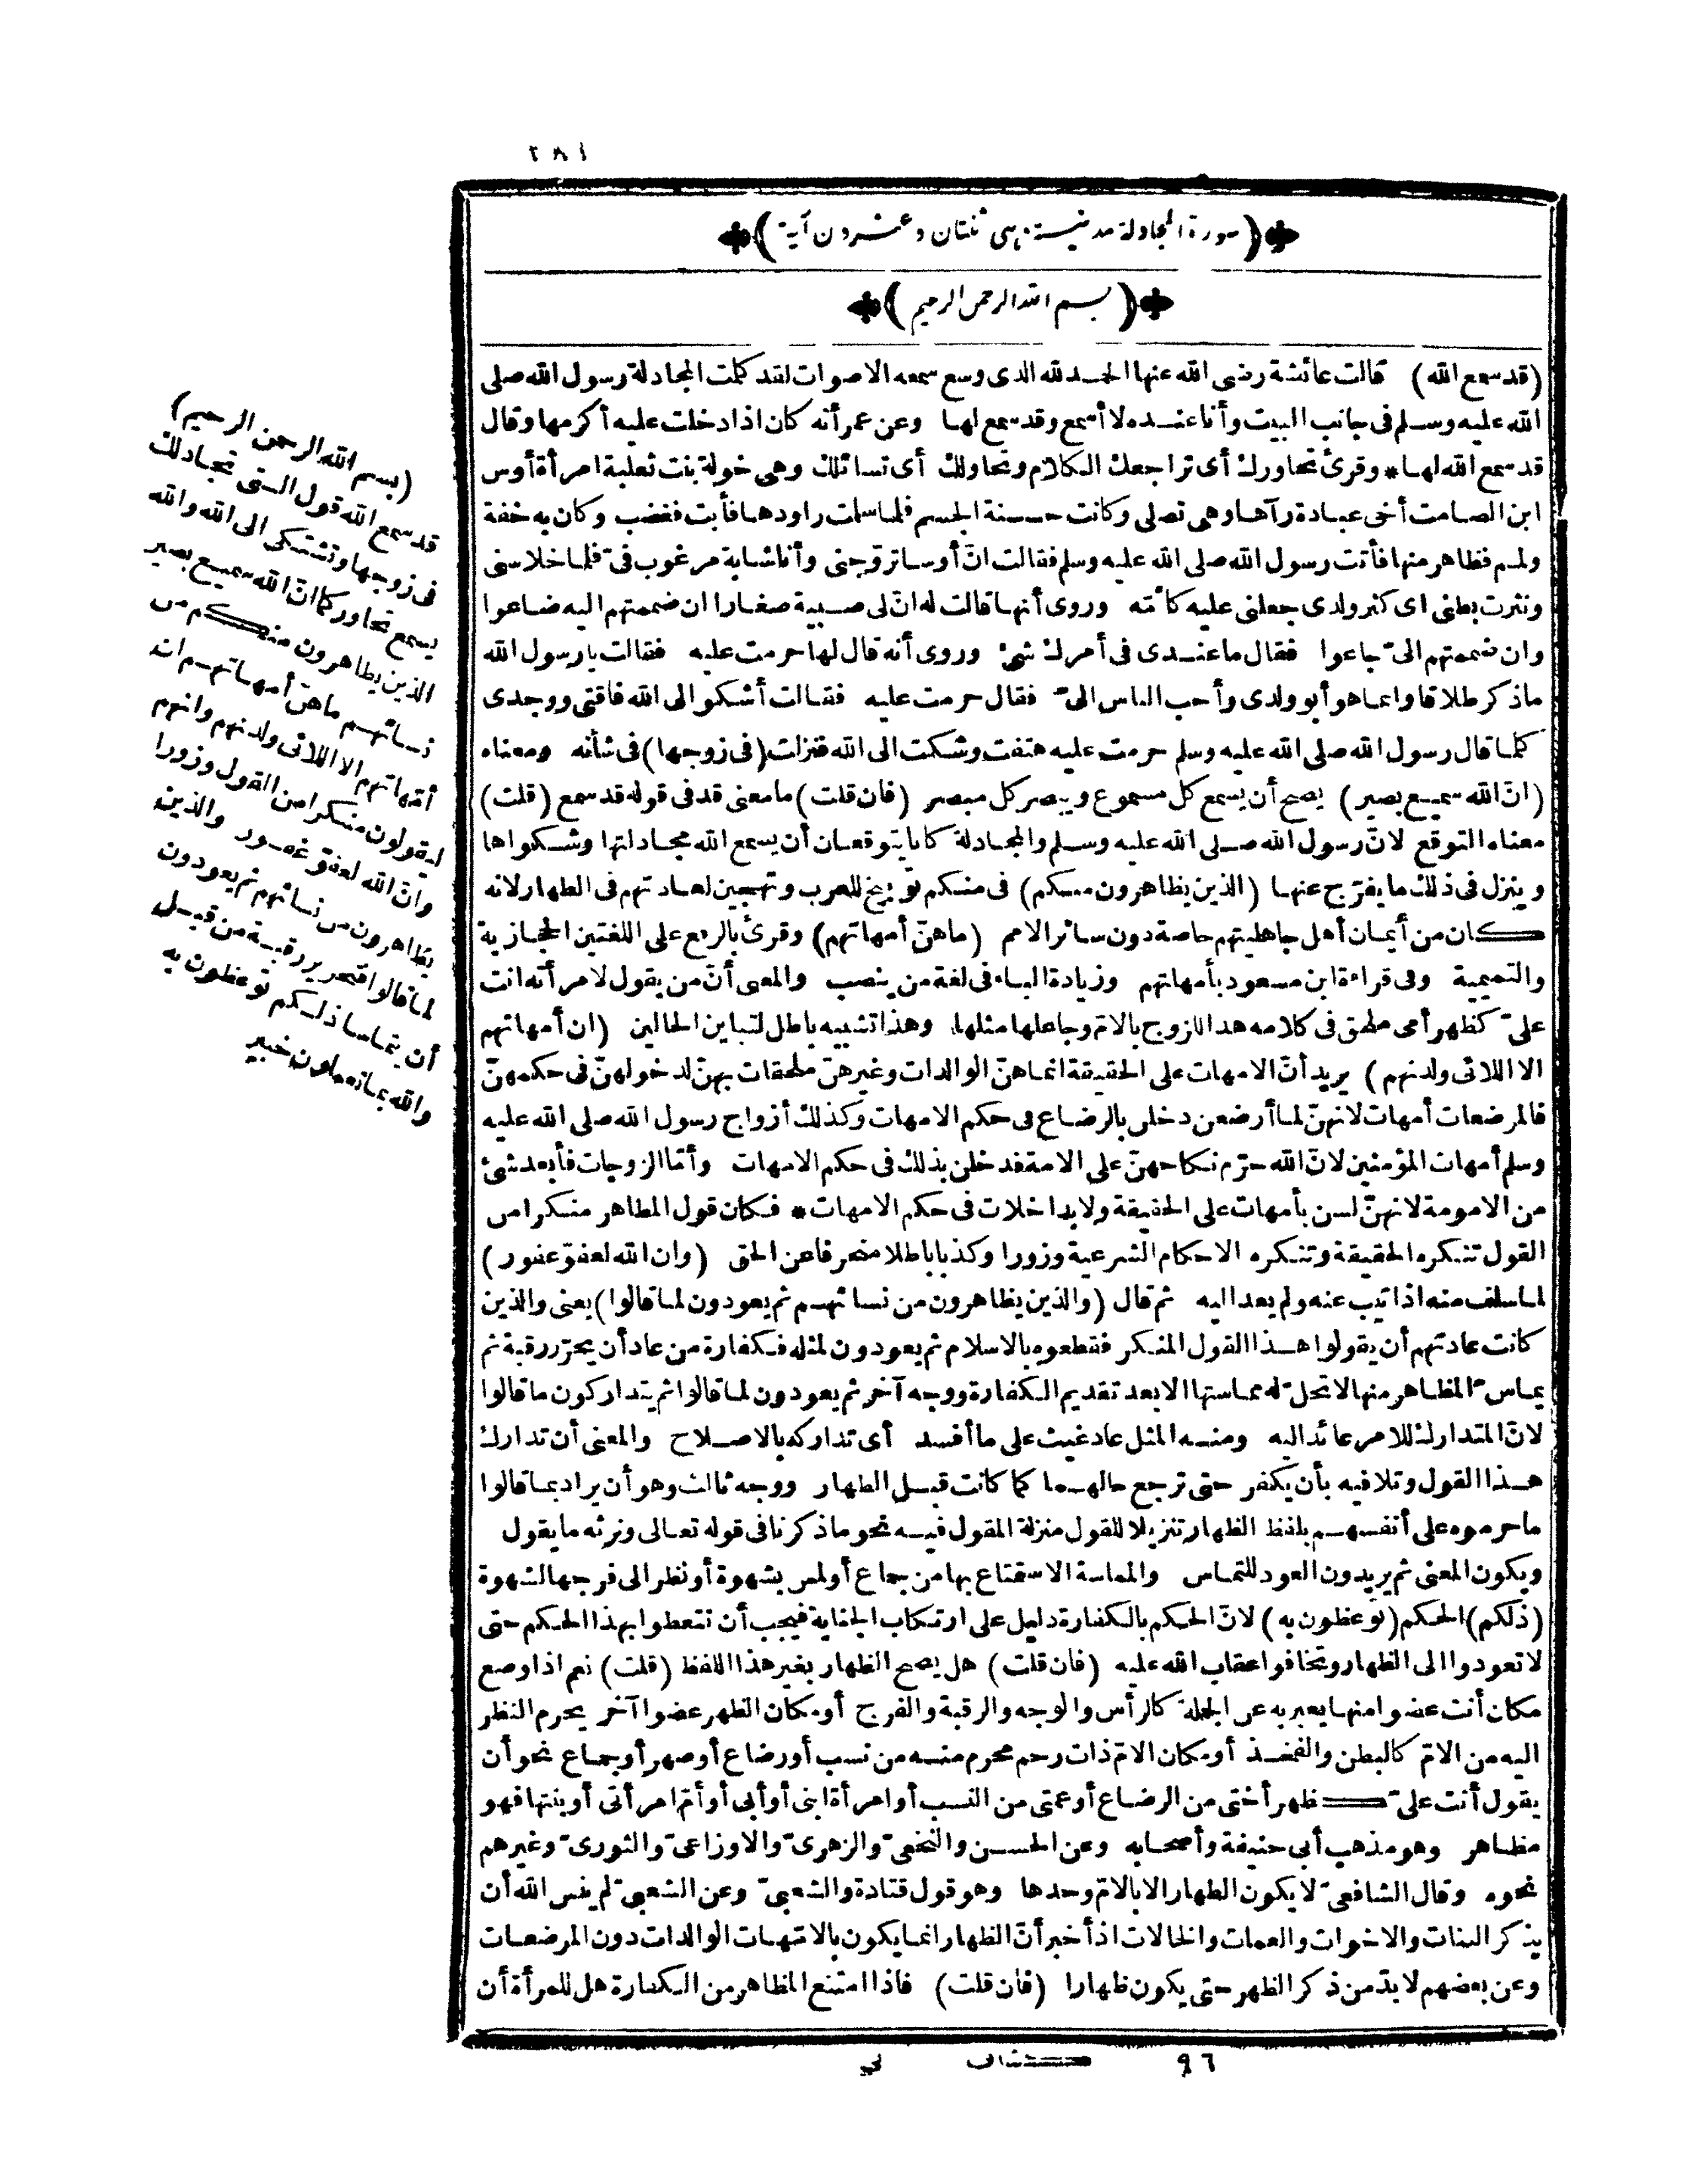 ٣٨١
(سورة المجادلة مدنية وهى ثنتان وعشرون آية)
(بسم الله الرحمن الرحيم)
(قد سمع الله) قالت عائشة رضى الله عنها الحمد لله الذى وسع سمعه الاصوات لقد كلمت المجادلة رسول الله صلى
الله عليه وسلم فى جانب البيت وأنا عنده لا أسمع وقد سمع لها وعن عمر أنه كان اذا دخلت عليه أكرمها وقال
قد سمع الله لها * وقرئ تحاورك أى تراجعك الكلام وتحاولك أى تسائلك وهى خولة بنت ثعلبة امرأة أوس
ابن الصامت أخى عبادة رآها وهى تصلى وكانت حسنة الجسم فلما سلمت راودها فأبت فغضب وكان به خفة
ولمم فظاهر منها فأتت رسول الله صلى الله عليه وسلم فقالت انّ أوسا تزوّجنى وأنا شابة مرغوب فىّ فلما خلا سنى
ونثرت بطنى اى كثر ولدى جعلنى عليه كأمّه وروى أنها قالت له انّ لى صبية صغارا ان ضممتهم اليه ضاعوا
وان ضممتهم الىّ جاعوا فقال ما عندى فى أمرك شئ وروى أنه قال لها حرمت عليه فقالت يا رسول الله
ما ذكر طلاقا وانما هو أبو ولدى وأحب الناس الىّ فقال حرمت عليه فقالت أشكو الى الله فاقتى ووجدى
كلما قال رسول الله صلى الله عليه وسلم حرمت عليه هتفت وشكت الى الله فنزلت (فى زوجها) فى شأنه ومعناه
(انّ الله سميع بصير) يصح أن يسمع كل مسموع ويبصر كل مبصر (فان قلت) ما معنى قد فى قوله قد سمع (قلت)
معناه التوقع لانّ رسول الله صلى الله عليه وسلم والمجادلة كانا يتوقعان أن يسمع الله مجادلتها وشكواها
وينزل فى ذلك ما يفرّج عنها (الذين يظاهرون منكم) فى منكم توبيخ للعرب وتهجين لعادتهم فى الظهار لانه
كان من أيمان أهل جاهليتهم خاصة دون سائر الامم (ما هنّ أمهاتهم) وقرئ بالرفع على اللغتين الحجازية
والتميمية وفى قراءة ابن مسعود بأمهاتهم وزيادة الباء فى لغة من ينصب والمعنى أنّ من يقول لامرأته انت
علىّ كظهر أمى ملحق فى كلامه هذا للزوج بالامّ وجاعلها مثلها وهذا تشبيه باطل لتباين الحالين (ان أمهاتهم
الا اللائى ولدنهم) يريد أنّ الامهات على الحقيقة انما هنّ الوالدات وغيرهنّ ملحقات بهنّ لدخولهنّ فى حكمهنّ
فالمرضعات أمهات لانهنّ لما أرضعن دخلن بالرضاع فى حكم الامهات وكذلك أزواج رسول الله صلى الله عليه
وسلم أمهات المؤمنين لانّ الله حرّم نكاحهنّ على الامة فدخلن بذلك فى حكم الامهات وأمّا الزوجات فأبعد شئ
من الامومة لانهنّ لسن بأمهات على الحقيقة ولا بداخلات فى حكم الامهات * فكان قول المظاهر منكرا من
القول تنكره الحقيقة وتنكره الاحكام الشرعية وزورا وكذبا باطلا منحرفا عن الحق (وان الله لعفوّ غفور)
لما سلف منه اذا تيب عنه ولم يعد اليه ثم قال (والذين يظاهرون من نسائهم ثم يعودون لما قالوا) يعنى والذين
كانت عادتهم أن يقولوا هذا القول المنكر فقطعوه بالاسلام ثم يعودون لمثله فكفارة من عاد أن يحرّر رقبة ثم
يماسّ المظاهر منها لا تحلّ له مماستها الا بعد تقديم الكفارة ووجه آخر ثم يعودون لما قالوا ثم يتداركون ما قالوا
لانّ المتدارك للامر عائد اليه ومنه المثل عاد غيث على ما أفسد أى تداركه بالاصلاح والمعنى أن تدارك
هذا القول وتلافيه بأن يكفر حتى ترجع حالهما كما كانت قبل الظهار ووجه ثالث وهو أن يراد بما قالوا
ما حرموه على أنفسهم بلفظ الظهار تنزيلا للقول منزلة المقول فيه نحو ما ذكرنا فى قوله تعالى ونرثه ما يقول
ويكون المعنى ثم يريدون العود للتماس والمماسة الاستمتاع بها من جماع أو لمس بشهوة أو نظر الى فرجها لشهوة
(ذلكم) الحكم (توعظون به) لانّ الحكم بالكفارة دليل على ارتكاب الجناية فيجب أن تتعظوا بهذا الحكم حتى
لا تعودوا الى الظهار وتخافوا عقاب الله عليه (فان قلت) هل يصح الظهار بغير هذا اللفظ (قلت) نعم اذا وضع
مكان أنت عضوا منها يعبر به عن الجملة كالرأس والوجه والرقبة والفرج أو مكان الظهر عضوا آخر يحرم النظر
اليه من الامّ كالبطن والفخذ أو مكان الامّ ذات رحم محرم منه من نسب أو رضاع أو صهر أو جماع نحو أن
يقول أنت علىّ كظهر أختى من الرضاع أو عمتى من النسب أو امرأة ابنى أو أبى أو أمّ امرأتى أو بنتها فهو
مظاهر وهو مذهب أبى حنيفة وأصحابه وعن الحسن والنخعىّ والزهرىّ والاوزاعىّ والثورىّ وغيرهم
نحوه وقال الشافعىّ لا يكون الظهار الا بالامّ وحدها وهو قول قتادة والشعبىّ وعن الشعبىّ لم ينس الله أن
يذكر البنات والاخوات والعمات والخالات اذ أخبر أنّ الظهار انما يكون بالامّهات الوالدات دون المرضعات
وعن بعضهم لا بدّ من ذكر الظهر حتى يكون ظهارا (فان قلت) فاذا امتنع المظاهر من الكفارة هل للمرأة أن
(بسم الله الرحمن الرحيم)
قد سمع الله قول التى تجادلك
فى زوجها وتشتكى الى الله والله
يسمع تحاوركما انّ الله سميع بصير
الذين يظاهرون منكم من
نسائهم ما هنّ أمهاتهم ان
أمّهاتهم الا اللائى ولدنهم وانهم
ليقولون منكرا من القول وزورا
وانّ الله لعفوّ غفور والذين
يظاهرون من نسائهم ثم يعودون
لما قالوا فتحرير رقبة من قبل
أن يتماسا ذلكم توعظون به
والله بما تعملون خبير
٩٦ كشاف نى